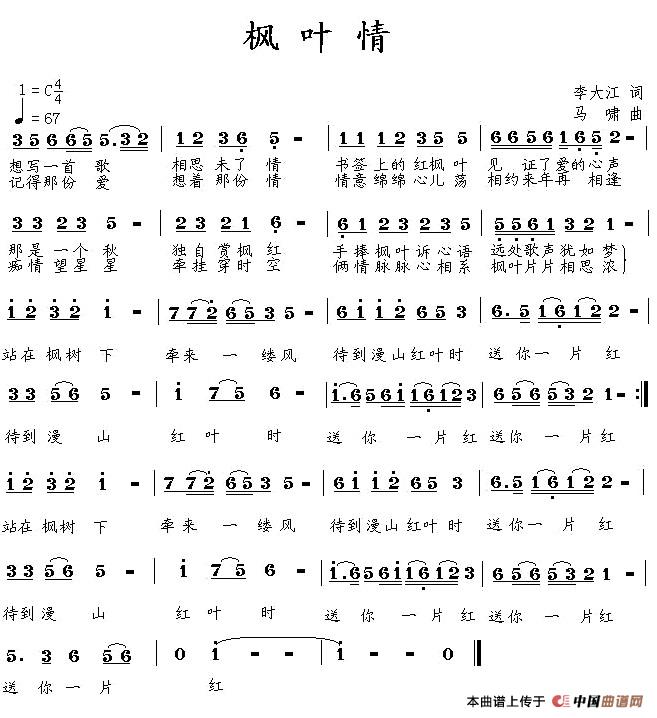 枫叶情
1=C4/4
♩=67
李大江 词
马啸 曲
3 5 6 6 5 5.3 2 | 1 2 3 6 5 - | 1 1 2 3 2 1 2 3 | 6 6 5 6 1 1 6 5 -
想写一首歌 相思未了情 书签上的红枫叶 见证了爱的心声
记得那份爱 想着那份情 情意绵绵心儿荡 相约来年再相逢
3 3 2 3 5 - | 2 3 2 1 6 - | 6 1 2 3 2 3 5 | 5 5 6 1 3 3 2 -
那是一个秋 独自赏枫红 手捧枫叶诉心语 远处歌声犹如梦
痴情望星星 牵挂穿时空 俩情脉脉心相系 枫叶片片相思浓
1 2 3 2 1 - | 7 7 2 6 5 3 5 - | 6 1 1 2 6 5 3 | 6. 5 1 6 1 2 2 -
站在枫树下 牵来一缕风 待到漫山红叶时 送你一片红
3 3 5 6 5 - | 1 7 5 6 - | 1.6 5 6 1 1 6 1 2 3 | 6 5 6 5 3 2 1 - :‖
待到漫山 红叶时 送你一片红 送你一片红
1 2 3 2 1 - | 7 7 2 6 5 3 5 - | 6 1 1 2 6 5 3 | 6.5 1 6 1 2 2 -
站在枫树下 牵来一缕风 待到漫山红叶时 送你一片红
3 3 5 6 5 - | 1 7 5 6 - | 1.6 5 6 1 1 6 1 2 3 | 6 5 6 5 3 2 1 -
待到漫山 红叶时 送你一片红 送你一片红
5. 3 6 5 6 | 0 1 - - | 1 - 0 0 ‖
送你一片 红
本曲谱上传于 中国曲谱网